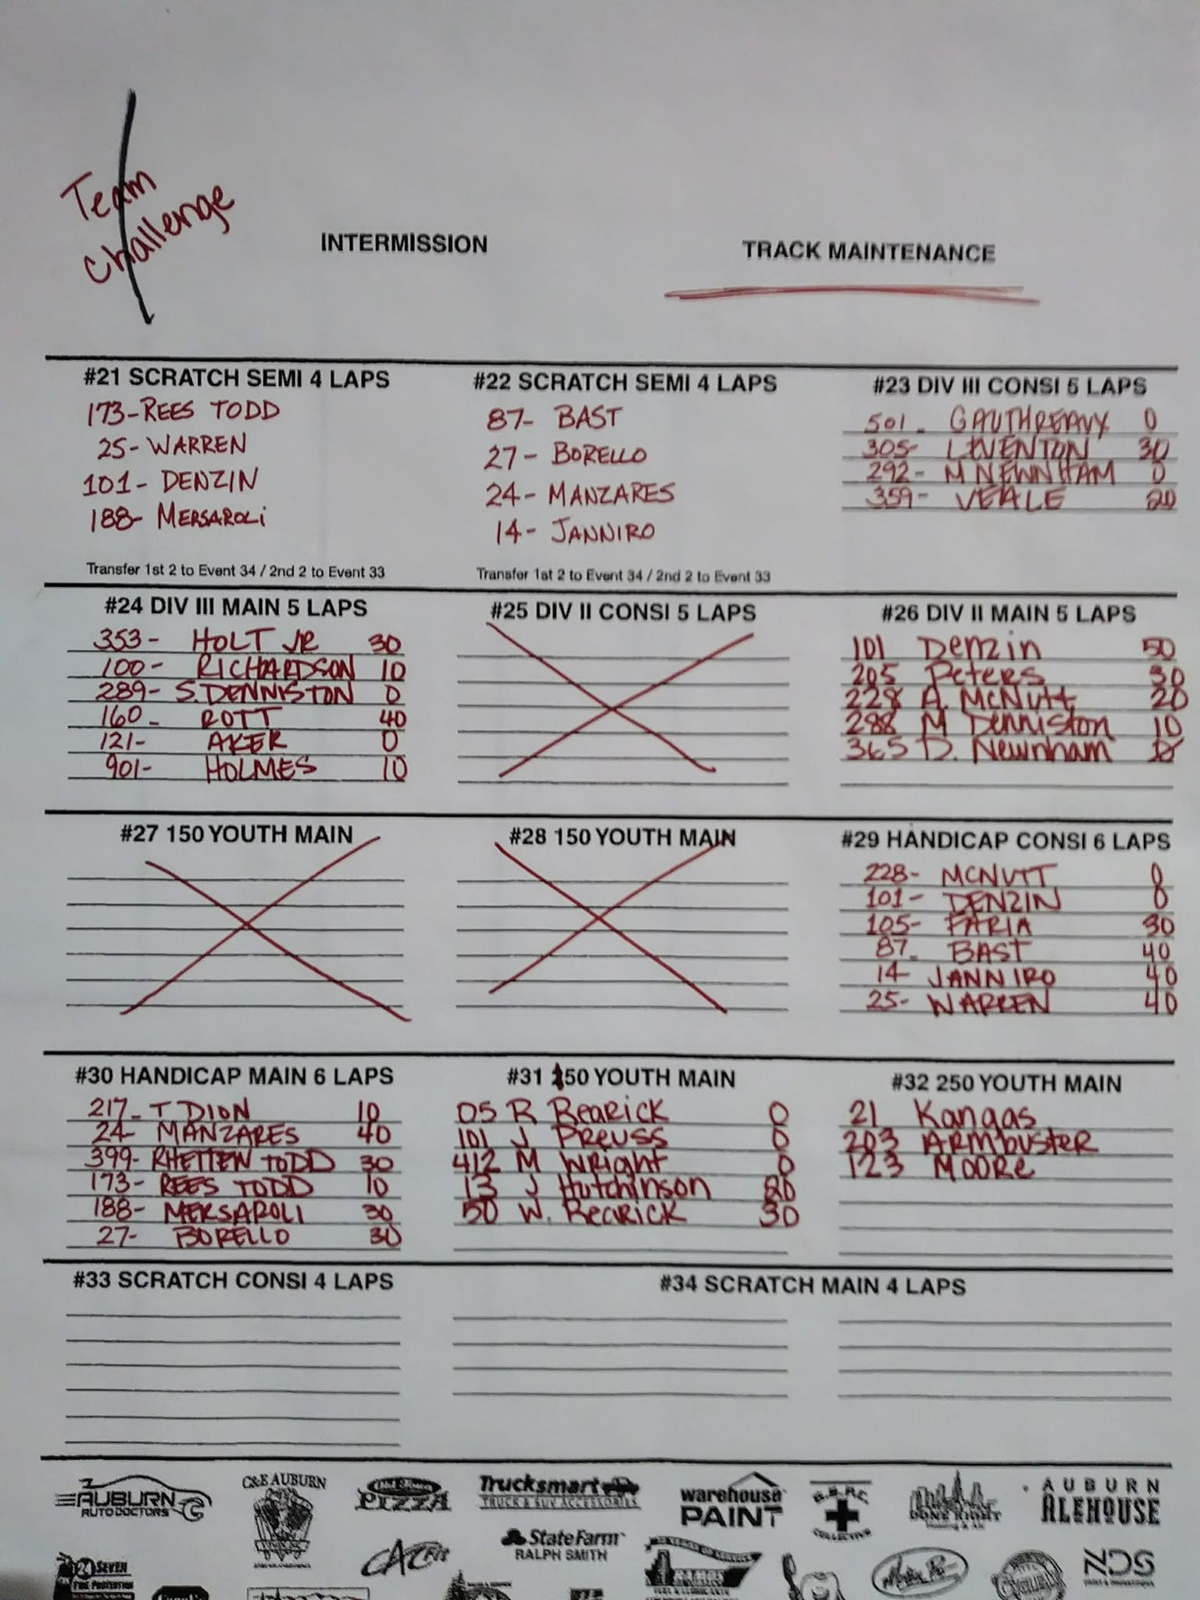 Team
Challenge
INTERMISSION
TRACK MAINTENANCE
#21 SCRATCH SEMI 4 LAPS
173-REES TODD
25-WARREN
101-DENZIN
188-MERSAROLI
Transfer 1st 2 to Event 34 / 2nd 2 to Event 33
#22 SCRATCH SEMI 4 LAPS
87- BAST
27- BORELLO
24- MANZARES
14- JANNIRO
Transfer 1st 2 to Event 34 / 2nd 2 to Event 33
#23 DIV III CONSI 5 LAPS
501- GAUTHREAVX 0
305- LEVENTON 30
292- M NEWNHAM 0
359- VEALE 20
#24 DIV III MAIN 5 LAPS
353- HOLT JR 30
100- RICHARDSON 10
289- S. DENNISTON 0
160- ROTT 40
121- AKER 0
901- HOLMES 10
#25 DIV II CONSI 5 LAPS
#26 DIV II MAIN 5 LAPS
101 Denzin 50
205 Peters 30
228 A. McNutt 20
288 M Denniston 10
365 D. Newnham
#27 150 YOUTH MAIN
#28 150 YOUTH MAIN
#29 HANDICAP CONSI 6 LAPS
228- MCNUTT 0
101- DENZIN 0
105- FARIA 30
87- BAST 40
14- JANNIRO 40
25- WARREN 40
#30 HANDICAP MAIN 6 LAPS
217- T DION 10
24- MANZARES 40
399- RHETTEN TODD 30
173- REES TODD 10
188- MERSAROLI 30
27- BORELLO 30
#31 250 YOUTH MAIN
05 R Bearick 0
101 J Preuss 0
412 M Wright 0
13 J Hutchinson 20
50 W. Bearick 30
#32 250 YOUTH MAIN
21 Kangas
203 ARMbuster
123 Moore
#33 SCRATCH CONSI 4 LAPS
#34 SCRATCH MAIN 4 LAPS
AUBURN
AUTO DOCTORS
C&E AUBURN
PIZZA
Trucksmart
TRUCK & SUV ACCESSORIES
warehouse
PAINT
COLLECTIVE
DONE RIGHT
AUBURN
ALEHOUSE
State Farm
RALPH SMITH
24 SEVEN
FIRE PROTECTION
RAMOS
NDS